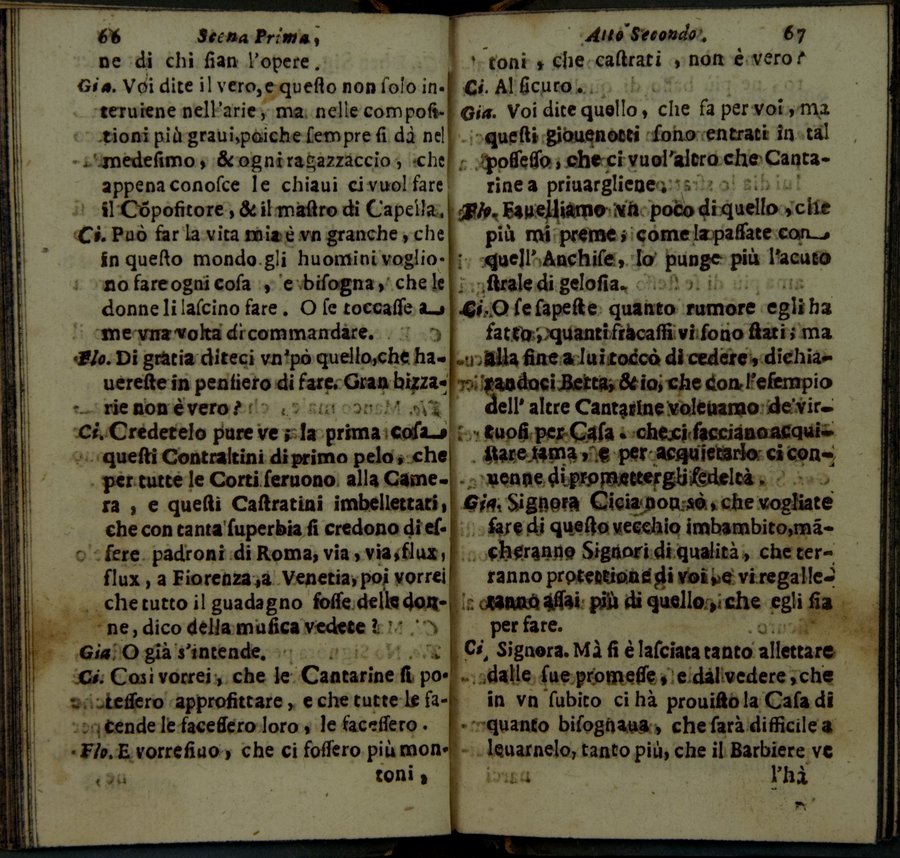 66 Scena Prima,
ne di chi ſian l'opere.
Gia. Voi dite il vero, e queſto non ſolo in-
teruiene nell'arie, ma nelle compoſi-
tioni più graui, poiche ſempre ſi dà nel
medeſimo, & ogni ragazzaccio, che
appena conoſce le chiaui ci vuol fare
il Cõpoſitore, & il maſtro di Capella.
Ci. Può far la vita mia è vn granche, che
in queſto mondo gli huomini voglio-
no fare ogni coſa, e biſogna, che le
donne li laſcino fare. O ſe toccaſſe a
me vna volta di commandare.
Flo. Di gratia diteci vn'pò quello, che ha-
uereſte in penſiero di fare. Gran bizza-
rie non è vero?
Ci. Credetelo pure ve; la prima coſa
queſti Contraltini di primo pelo, che
per tutte le Corti ſeruono alla Came-
ra, e queſti Caſtratini imbellettati,
che con tanta ſuperbia ſi credono di eſ-
ſere padroni di Roma, via, via, flux,
flux, a Fiorenza, a Venetia, poi vorrei
che tutto il guadagno foſſe delle don-
ne, dico della muſica vedete?
Gia. O già s'intende.
Ci. Coſi vorrei, che le Cantarine ſi po-
teſſero approfittare, e che tutte le fa-
cende le faceſſero loro, le faceſſero.
Flo. E vorreſiuo, che ci foſſero più mon-
toni,
Atto Secondo. 67
toni, che caſtrati, non è vero?
Ci. Al ſicuro.
Gia. Voi dite quello, che fa per voi, ma
queſti giouenotti ſono entrati in tal
poſſeſſo, che ci vuol'altro che Canta-
rine a priuargliene.
Flo. Fauelliamo vn poco di quello, che
più mi preme; come la paſſate con
quell' Anchiſe, lo punge più l'acuto
ſtrale di geloſia.
Ci. O ſe ſapeſte quanto rumore egli ha
fatto, quanti fracaſſi vi ſono ſtati; ma
alla fine a lui toccò di cedere, dichia-
randoci Betta, & io, che con l'eſempio
dell' altre Cantarine voleuamo de'vir-
tuoſi per Caſa. che ci facciano acqui-
ſtare fama, e per acquietarlo ci con-
uenne di promettergli fedeltà.
Gia. Signora Cicia non sò, che vogliate
fare di queſto vecchio imbambito, mã-
cheranno Signori di qualità, che ter-
ranno protettione di voi, e vi regalle-
ranno aſſai più di quello, che egli ſia
per fare.
Ci. Signora. Mà ſi è laſciata tanto allettare
dalle ſue promeſſe, e dal vedere, che
in vn ſubito ci hà prouiſto la Caſa di
quanto biſognaua, che ſarà difficile a
leuarnelo, tanto più, che il Barbiere ve
l'hà